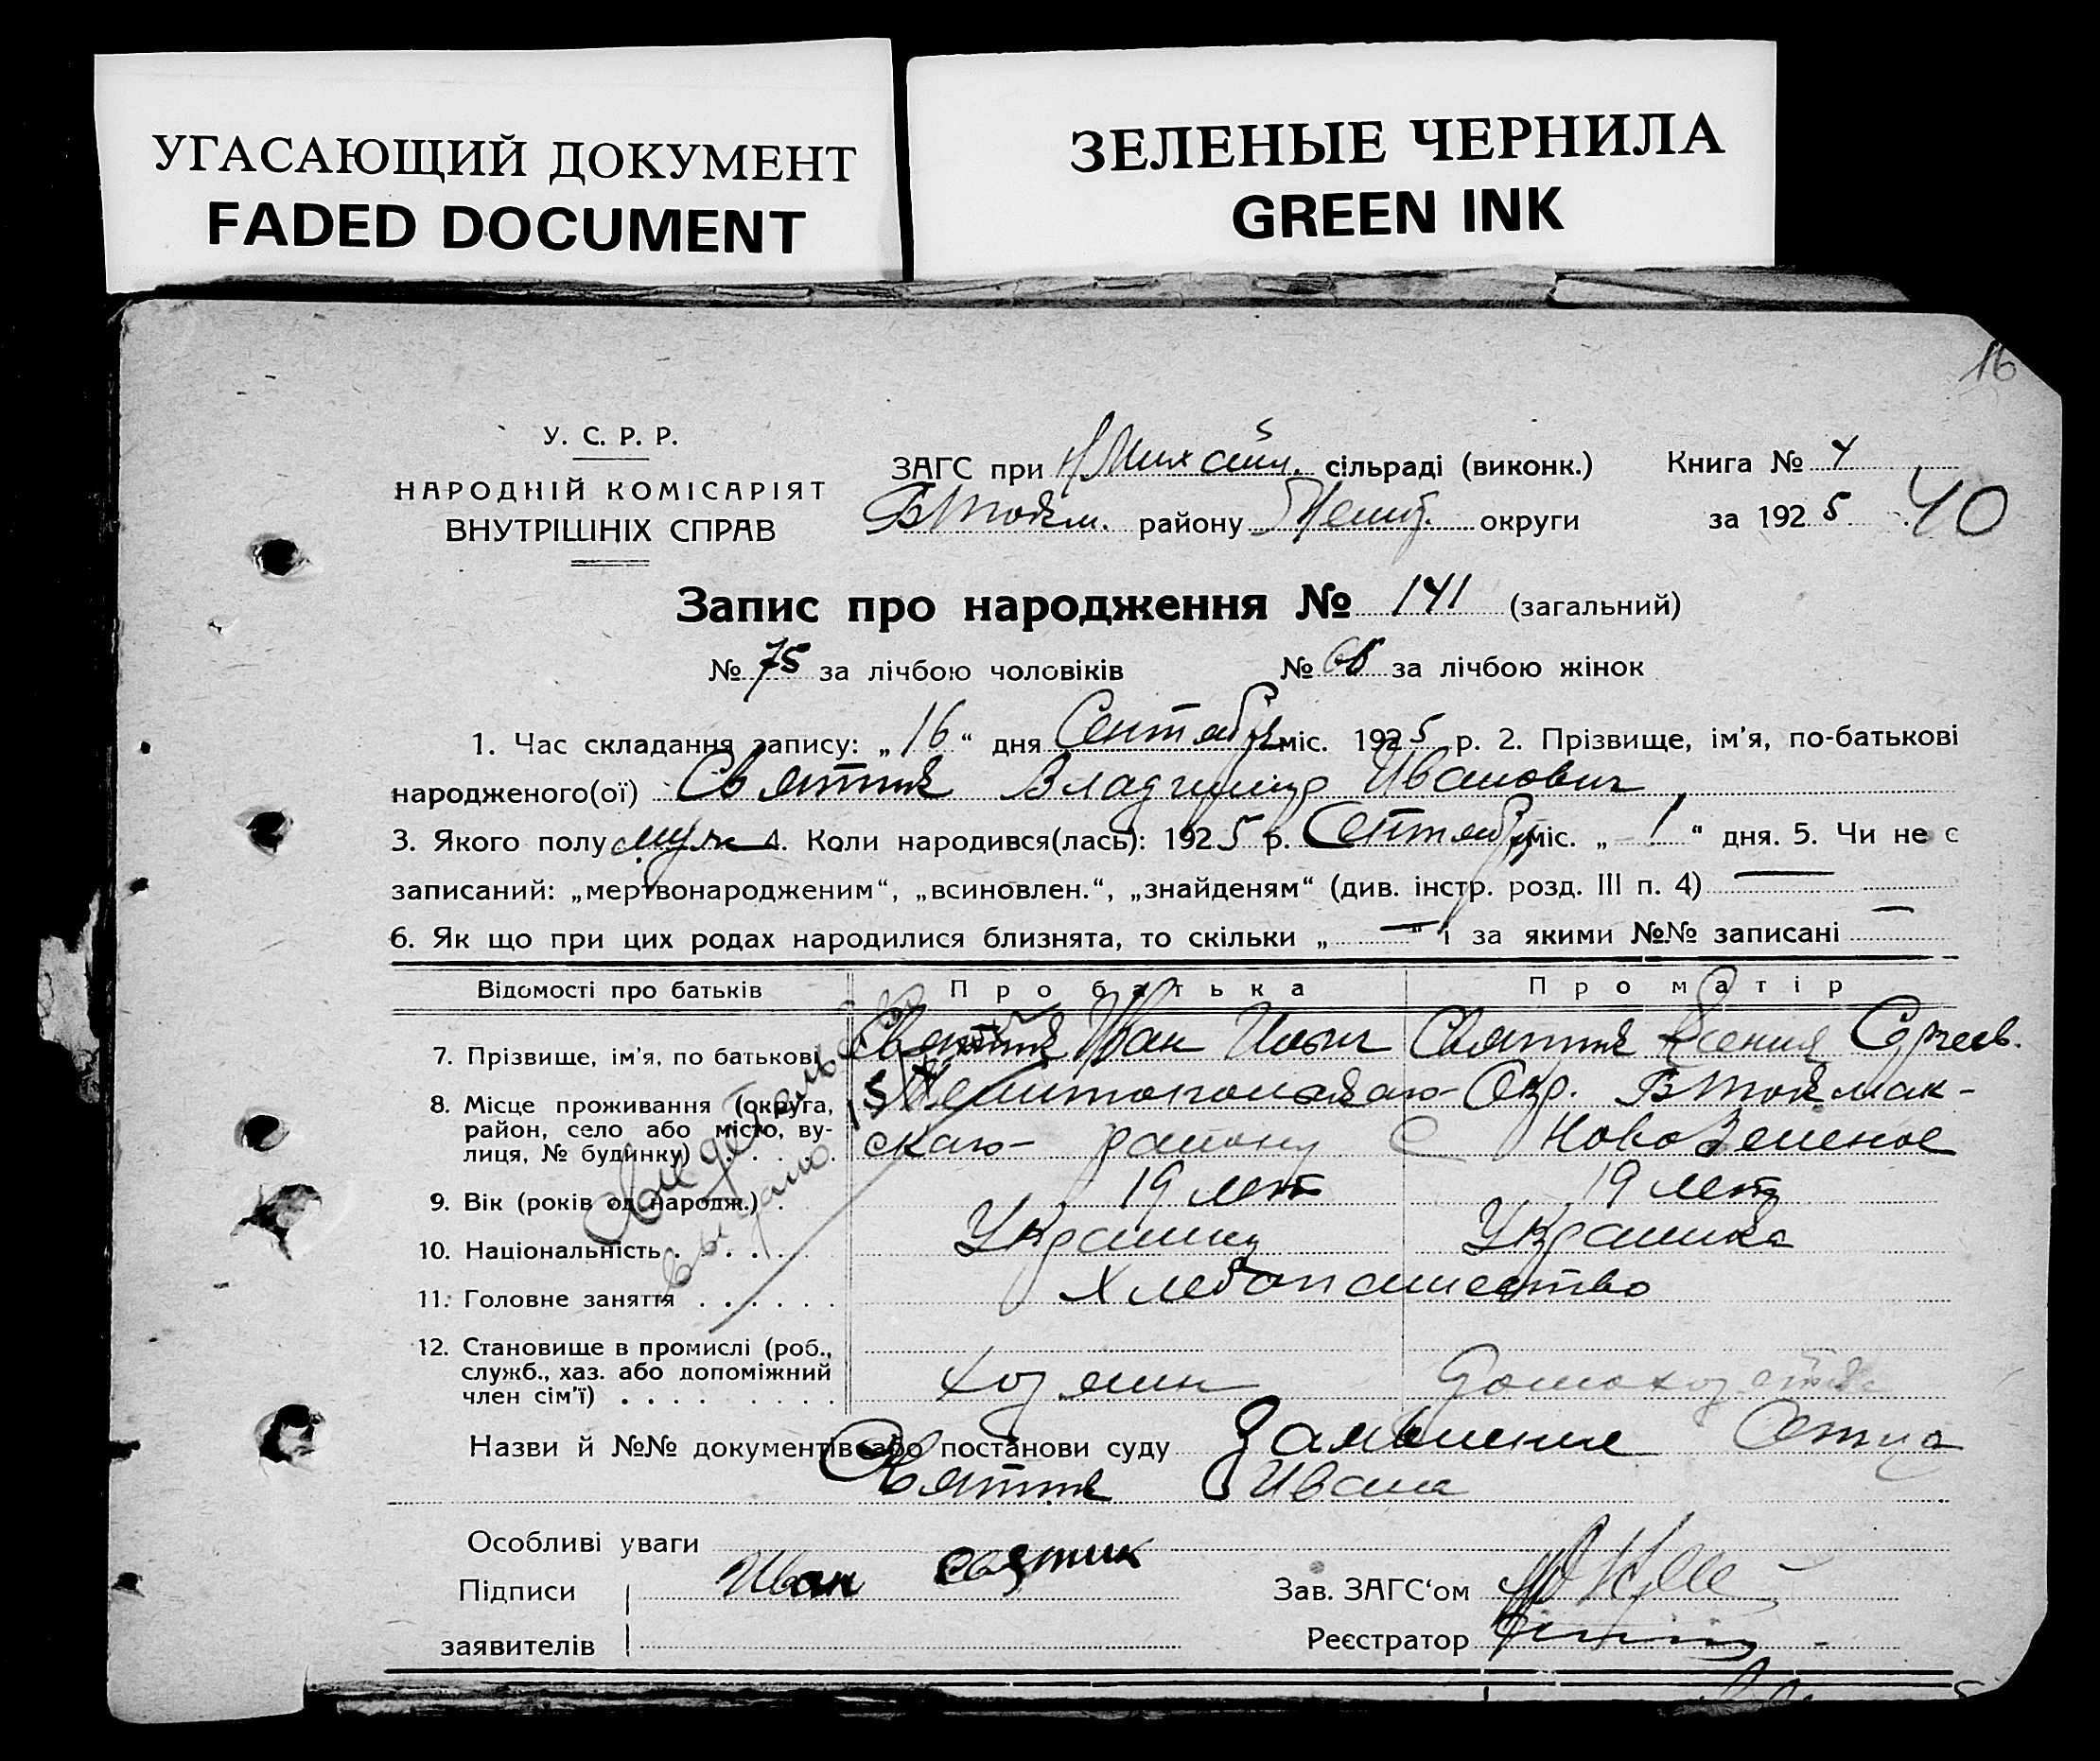 УГАСАЮЩИЙ ДОКУМЕНТ
FADED DOCUMENT
ЗЕЛЕНЫЕ ЧЕРНИЛА
GREEN INK
16
У. С. Р. Р.
НАРОДНІЙ КОМІСАРІЯТ
ВНУТРІШНІХ СПРАВ
ЗАГС при Н Михайл. сільраді (виконк.) Книга № 4
БТокм. району Мелит. округи за 1925 40
Запис про народження № 141 (загальний)
№ 75 за лічбою чоловіків № за лічбою жінок
1. Час складання запису: „16“ дня Сентября міс. 1925 р. 2. Прізвище, ім'я, по-батькові
народженого(ої) Святик Владимир Иванович
3. Якого полу муж 4. Коли народився(лась): 1925 р. Сентября міс. „1“ дня. 5. Чи не є
записаний: „мертвонародженим“, „всиновлен.“, „знайденям“ (див. інстр. розд. III п. 4) —
6. Як що при цих родах народилися близнята, то скільки „—“ і за якими №№ записані —
Відомості про батьків Про батька Про матір
7. Прізвище, ім'я, по батькові Святик Иван Ильич Святик Ксения Сергеев.
8. Місце проживання (округа, Мелитопольскаго Окр. БТокмак-
район, село або місто, ву-
лиця, № будинку) скаго району С Ново Зеленое
9. Вік (років од народж.) 19 лет 19 лет
10. Національність Украинец Украинка
11. Головне заняття Хлебопашество
12. Становище в промислі (роб.,
служб., хаз. або допоміжний
член сім'ї) хозяин домохоз
Свидетельство
выдано
Назви й №№ документів або постанови суду Заявление Отца
Святик Ивана
Особливі уваги
Підписи Иван Святик Зав. ЗАГС'ом
заявителів Реєстратор